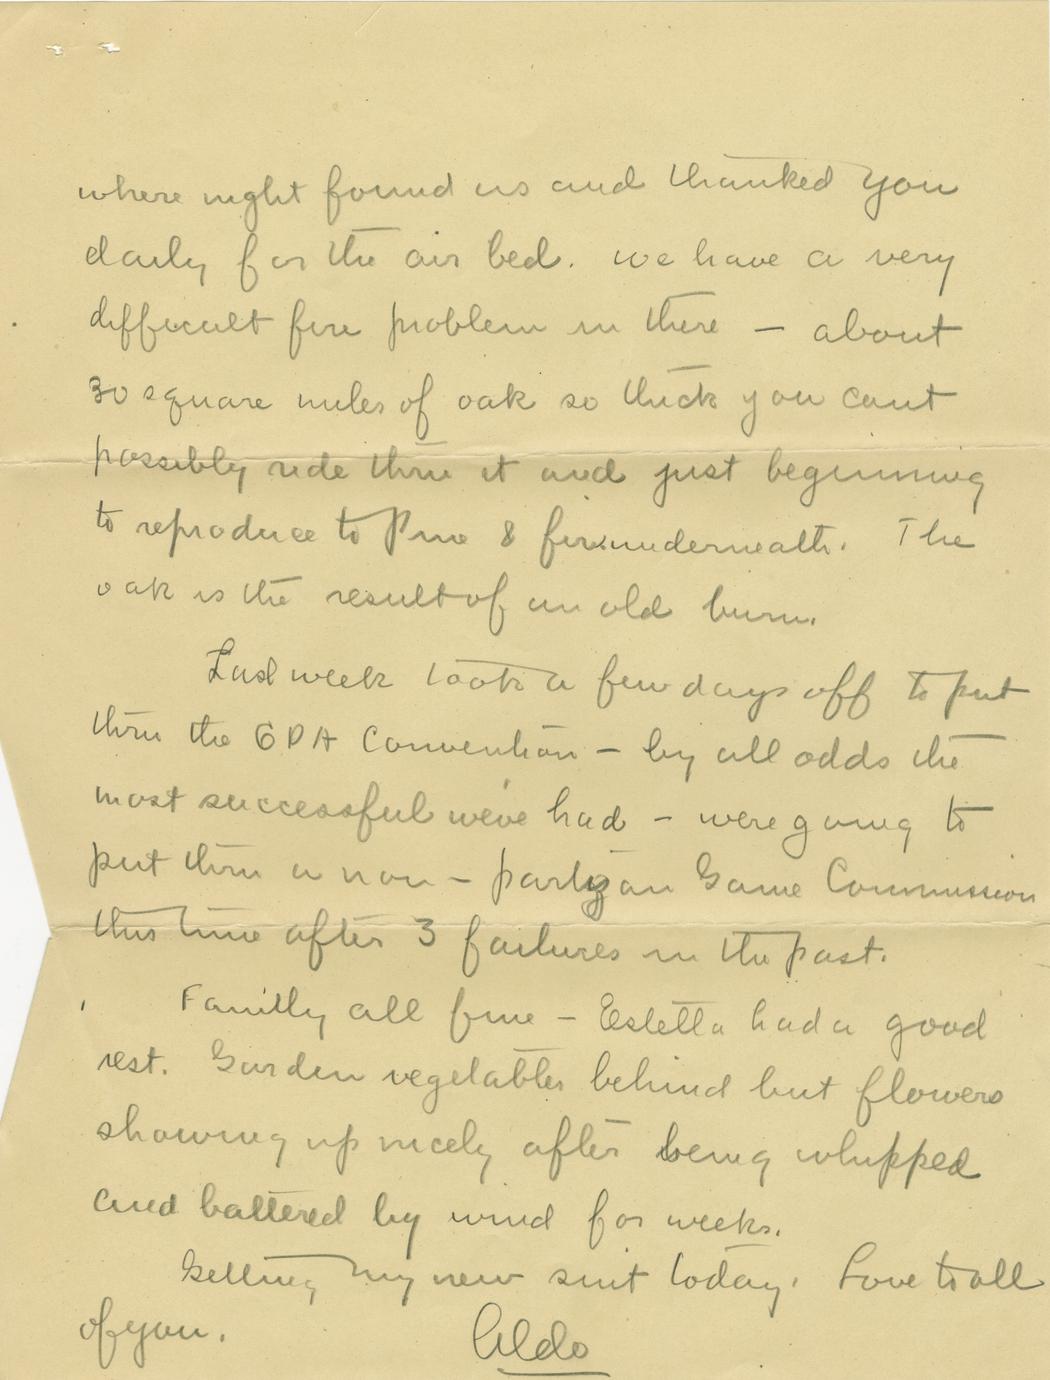 where night found us and thanked you
daily for the air bed. We have a very
difficult fire problem in there — about
30 square miles of oak so thick you cant
possibly ride thru it and just beginning
to reproduce to Pine & fir underneath. The
oak is the result of an old burn.
Last week took a few days off to put
thru the GPA Convention – by all odds the
most successful we've had – were going to
put thru a non – partizan Game Commission
this time after 3 failures in the past.
Family all fine – Estella had a good
rest. Garden vegetables behind but flowers
showing up nicely after being whipped
and battered by wind for weeks.
Getting my new suit today. Love to all
of you.
Aldo